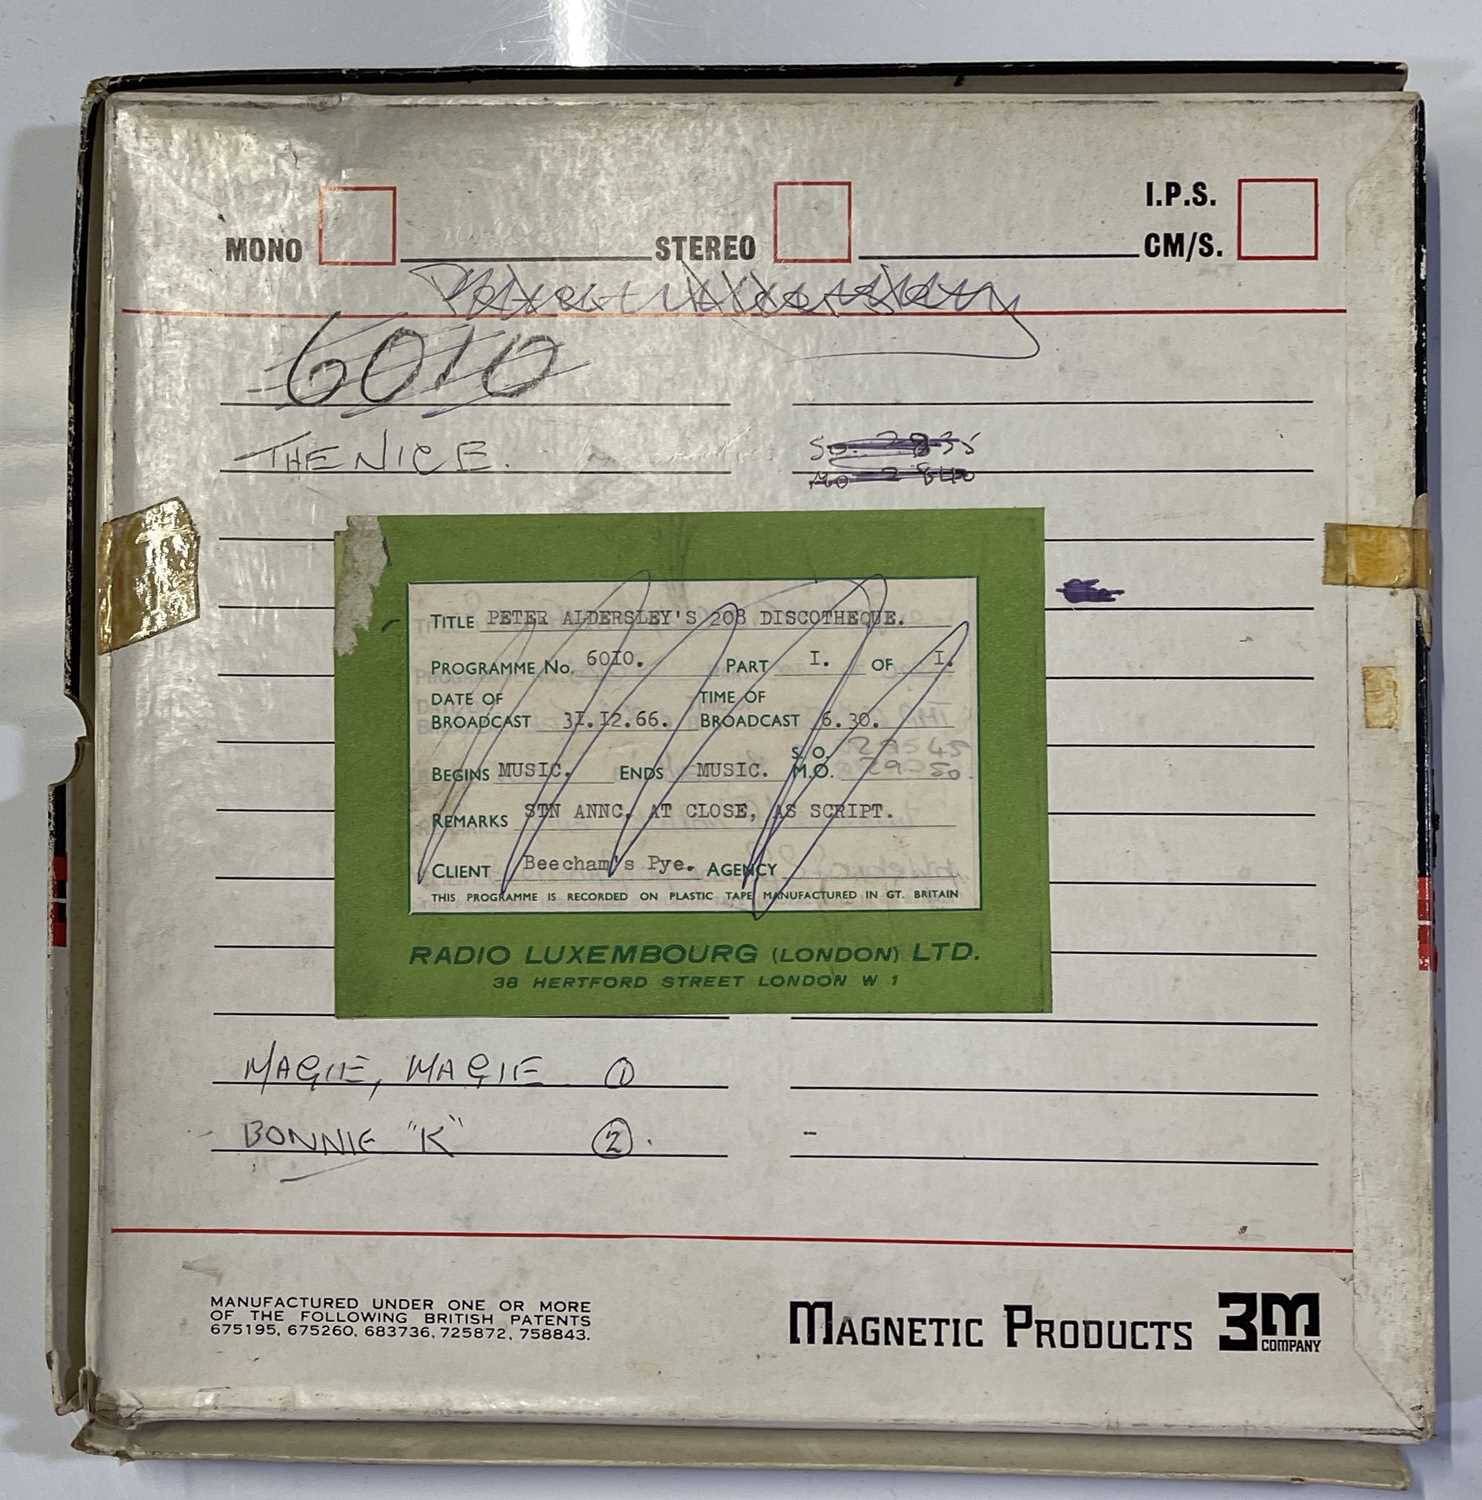 MONO STEREO I.P.S. CM/S.
6010
THE NICE.
So. 2835
Mo 2840
TITLE PETER ALDERSLEY'S 208 DISCOTHEQUE.
PROGRAMME No. 60I0. PART I. OF I.
DATE OF BROADCAST 3I.I2.66. TIME OF BROADCAST 6.30.
BEGINS MUSIC. ENDS MUSIC. S.O. M.O. 29-50.
REMARKS STN ANNC. AT CLOSE, AS SCRIPT.
CLIENT Beecham's Pye. AGENCY
THIS PROGRAMME IS RECORDED ON PLASTIC TAPE MANUFACTURED IN GT. BRITAIN
RADIO LUXEMBOURG (LONDON) LTD.
38 HERTFORD STREET LONDON W 1
MAGIE, MAGIE 1
BONNIE "K" 2.
MANUFACTURED UNDER ONE OR MORE
OF THE FOLLOWING BRITISH PATENTS
675195, 675260, 683736, 725872, 758843.
MAGNETIC PRODUCTS 3M COMPANY